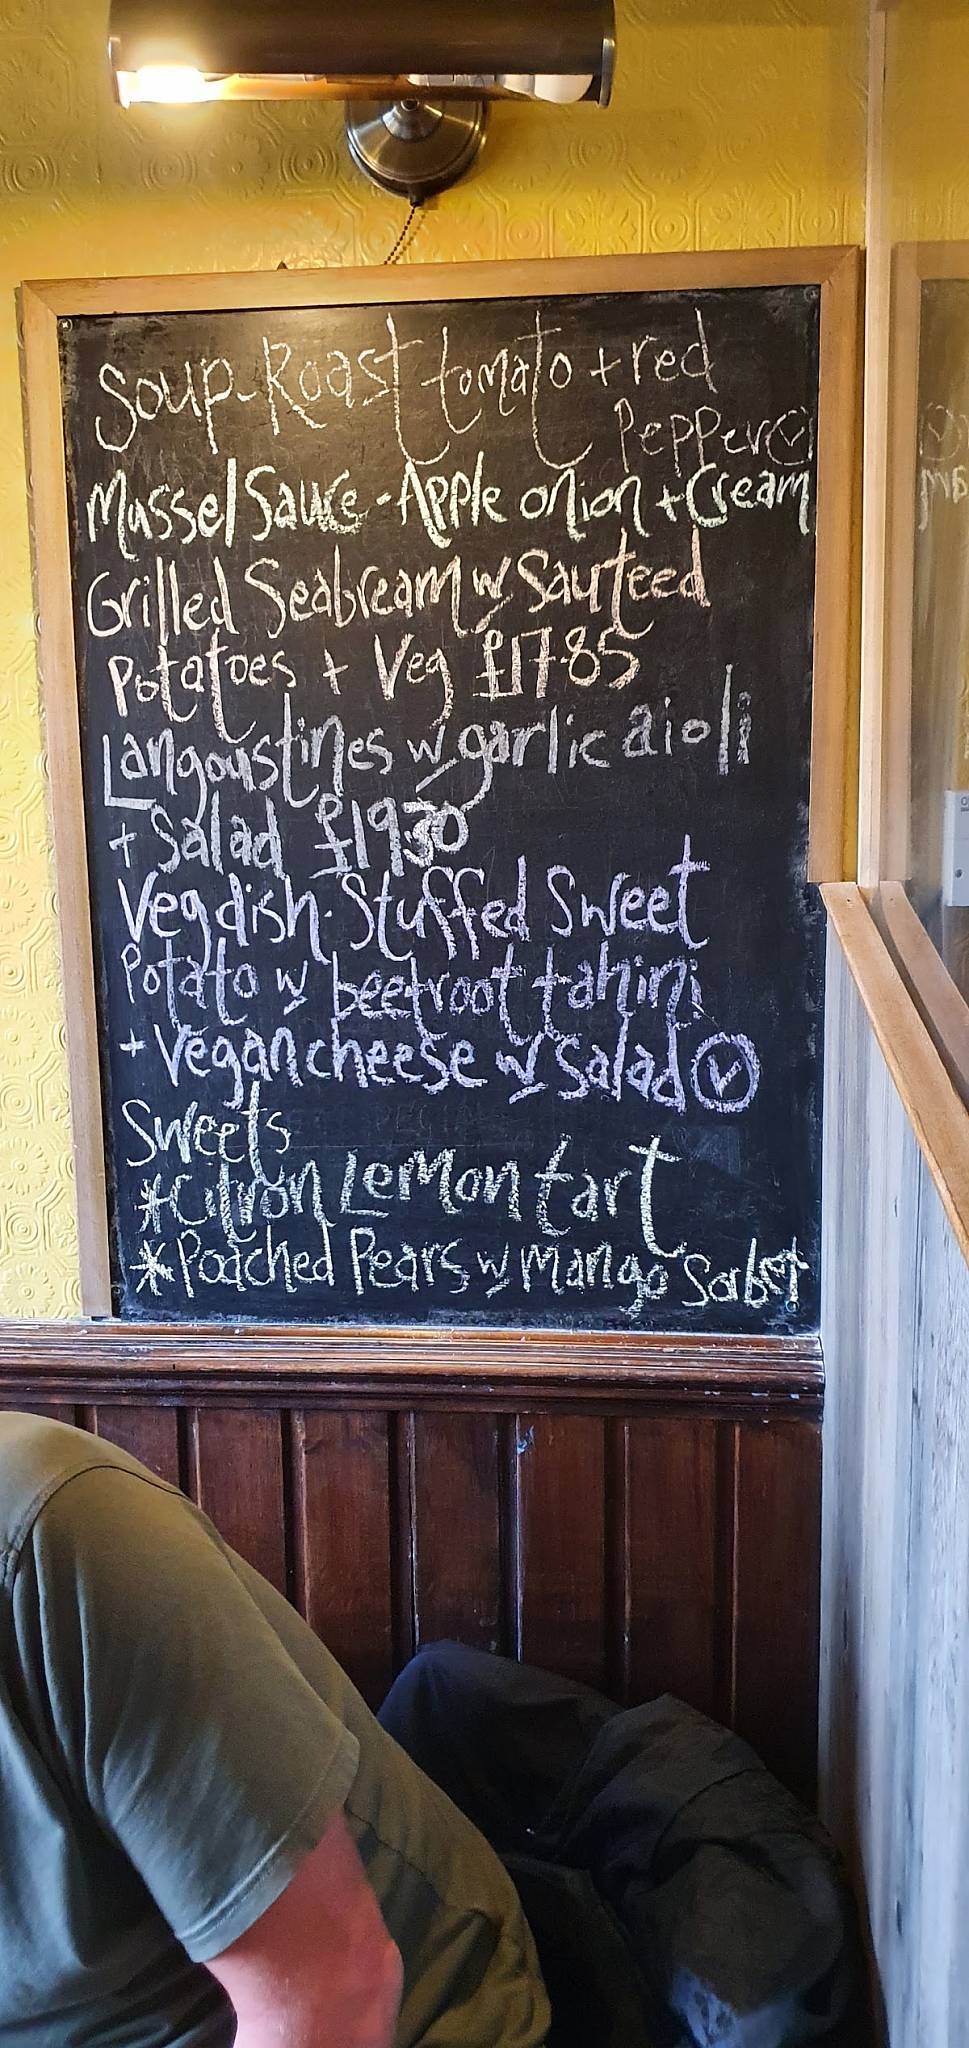 Soup - Roast tomato + red
Pepper Ⓥ
Mussel Sauce - Apple onion + Cream
Grilled Seabream w Sauteed
Potatoes + Veg £17.85
Langoustines w garlic aioli
+ Salad £19.30
Veg dish - Stuffed Sweet
Potato w beetroot tahini
+ Vegan cheese w Salad Ⓥ
Sweets
*Citron Lemon tart
*Poached Pears w mango Sorbet